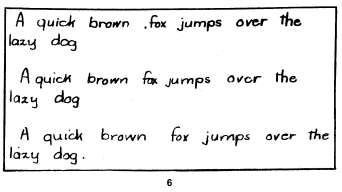 A quick brown .fox jumps over the
lazy dog
A quick brown fox jumps over the
lazy dog
A quick brown fox jumps over the
lazy dog.
6